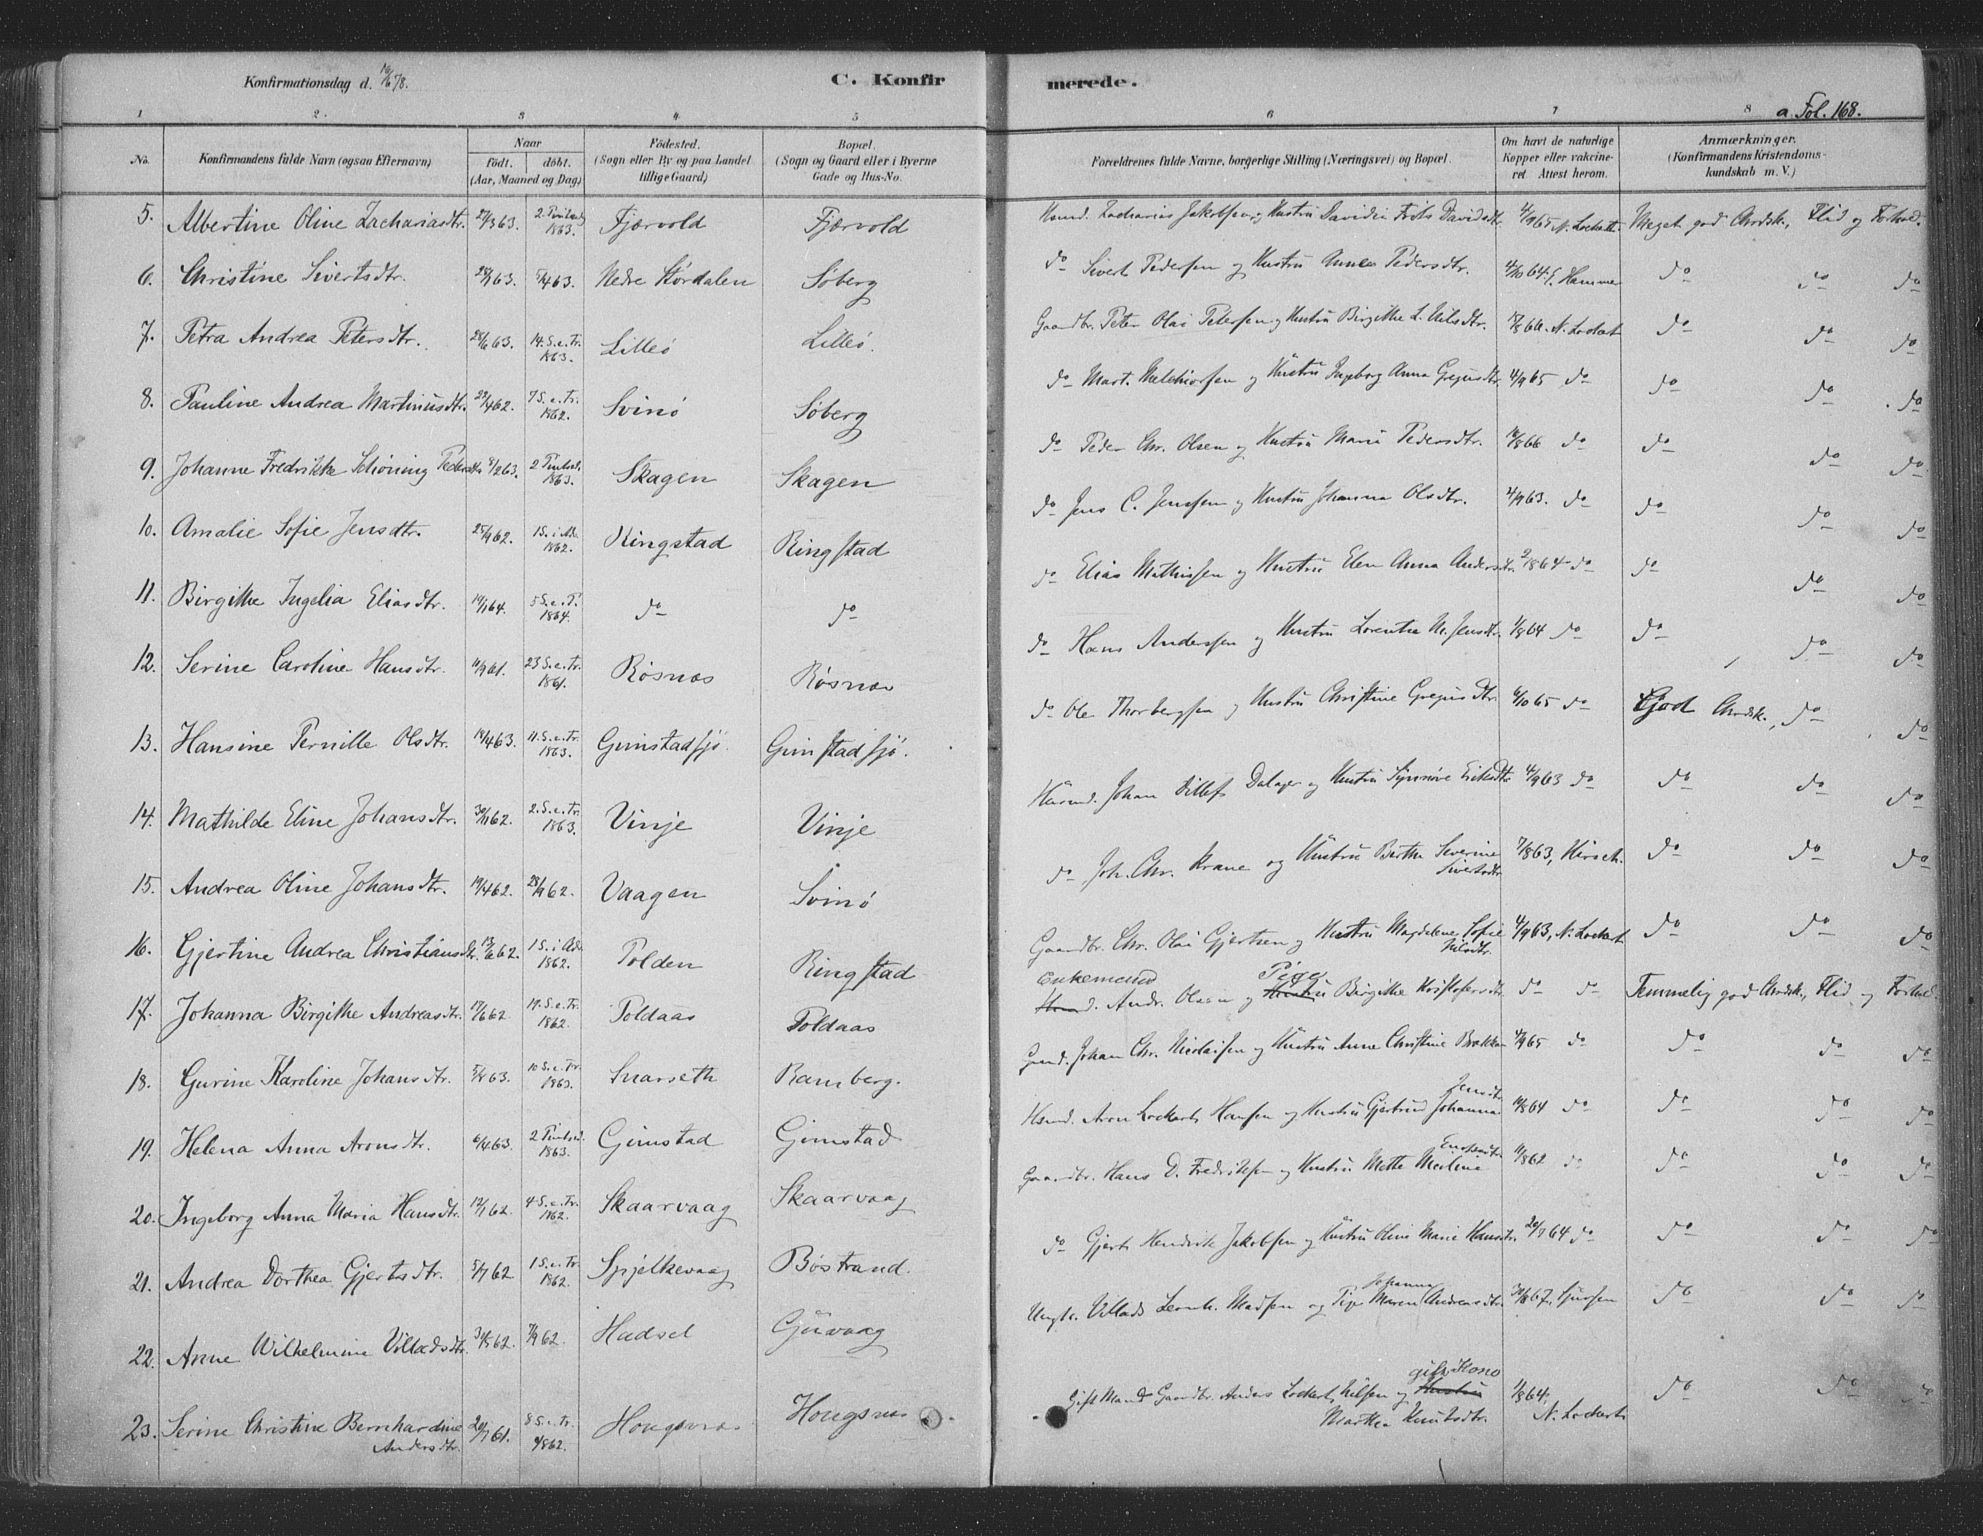 Konfirmationsdag d. 16/6 78.
C. Konfirmerede.
a. Fol. 168.
1 2. 3 4. 5 6 7 8
No. Konfirmandens fulde Navn (ogsaa Efternavn) Naar født. døbt. (Aar, Maaned og Dag) Fødested. (Sogn eller By og paa Landet tillige Gaard) Bopæl. (Sogn og Gaard eller i Byerne Gade og Hus-No. Forældrenes fulde Navne, borgerlige Stilling (Næringsvei) og Bopæl. Om havt de naturlige Kopper eller vakcineret Attest herom. Anmærkninger. (Konfirmandens Kristendomskundskab m. V.)
5. Albertine Oline Zachariasdtr. 27/3 63. 1863. Fjærvold Fjærvold Husmd. Zacharias Jakobsen og Hustru Davidsdtr. 4/9 65 N. Lockert Meget god Chrdsk., Flid og Forhold.
6. Christine Sivertsdtr. 5/4 63. Nedre Stördalen Söberg do Sivert Pedersen og Hustru Anne Pedersdtr. 4/10 64. Hammer do do do
7. Petra Andrea Petersdtr. 28/6 63. 14. S. e. Tr. 1863. Lilleö Lilleö. Gaardbr. Peter Olai Petersen og Hustru Birgithe L. Nilsdtr. N. Lockert do do do
8. Pauline Andrea Martinusdtr. 22/4 62. 7 S. e. Tr. 1862. Svinö Söberg do Mart. Melchiorsen og Hustru Ingeborg Anna Gregusdtr. 4/9 65 do do do do
9. Johanne Fredrikke Schöning Pedersdtr 8/2 63. 1863. Skagen Skagen do Peder Chr. Olsen og Hustru Maria Pedersdtr. 14/8 66 do do do do
10. Amalie Sofie Jensdtr. 25/9 62. 1 S. i Adv. 1862. Ringstad Ringstad do Jens C. Jenssen og Hustru Johanna Olsdtr. 4/9 63. do do do do
11. Birgithe Ingelia Eliasdtr. 19/1 64. 1864. do do do Elias Mathissen og Hustru Elen Anna Andersdtr. 2/8 64 do do do do
12. Serine Caroline Hansdtr. 11/9 61. 23 S. e. Tr. 1861. Rösnæs Rösnæs do Hans Anderssen og Hustru Lorentse M. Jensdtr. 1/8 64 do do do do
13. Hansine Pernille Olsdtr. 18/4 63. 11. S. e. Tr. 1863. Gimstadsjö. Gimstadsjö. do Ole Thorbergsen og Hustru Christine Gregusdtr. 4/10 65 do God Chrdsk., do do
14. Mathilde Eline Johansdtr. 30/11 62. 2. S. e. Tr. 1863. Vinje Vinje Husmd. Johan Ditlef Dalager og Hustru Synnöve 4/9 63 do do do do
15. Andrea Oline Johansdtr. 19/4 62. 28/9 62. Vaagen Svinö do Joh. Chr. Krane og Hustru Berthe Severine Sivertsdtr. 7/8 63, Hirsch. do do do
16. Gjertine Andrea Christiansdtr. 13/6 62. 1 S. i Adv. 1862. Polden Ringstad Gaardbr. Chr. Olai Gjertsen og Hustru Magdelene Sofie Nilsdtr. 4/9 63, N. Lockert do do do
17. Johanna Birgithe Andreasdtr. 17/6 62 19. S. e. Tr. 1862. Toldaas Toldaas Enkemand Andr. Olsen og Pige Hustru Birgithe Kristofersdtr. do do Temmelig god Chrdsk., Flid og Forhold.
18. Gurine Karoline Johansdtr. 10 S. e. Tr. 1863. Snarseth Ramberg. Johan Chr. Nicolaisen og Hustru Anne Christine 4/9 65 do do do do
19. Helena Anna Aronsdtr. 6/4 63. 1863. Gimstad Gimstad Husmd. Aron Lockert Hansen og Hustru Gjertrud Johanna Jensdtr. 14/8 64 do do do do
20. Ingeborg Anna Maria Hansdtr. 12/1 62. 4 S. e. Tr. 1862. Skaarvaag Skaarvaag Gaardbr. Hans D. Fredriksen og Hustru Mette 11/8 62 do do do do
21. Andrea Dorthea Gjertsdtr. 5/1 62 1 S. e. Tr. 1862. Spjelkevaag Böstrand. do Gjert Hendrik Jakobsen og Hustru Oline Marie Hansdtr. do do do do
22. Anne Wilhelmine Villadsdtr. 7/9 62. Hadsel Guvaag Ungk. Villads Madsen og Pige Maren Johanna Andreasdtr. do do do
23. Serine Christine Bernhardine Andersdtr. 20/1 61. 8 S. e. Tr. 1862. Hougsnæs Hougsnæs Gift Mand Gaardbr. Anders Lockert Nilsen og Hustru gift Kone Marthea Knutsdtr. 1/8 64, N. Lockert do do do